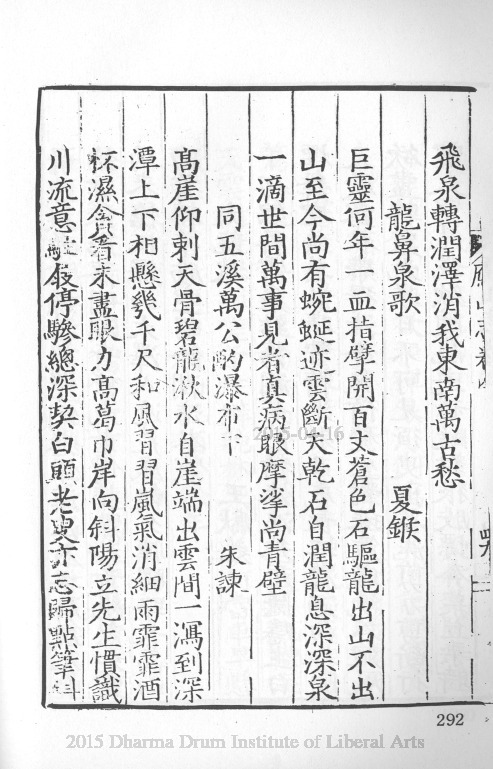 飛泉轉潤澤消我東南萬古愁
龍鼻泉歌 夏鍭
巨靈何年一血指擘開百丈蒼色石驅龍出山不出
山至今尚有蜿蜒迹雲斷天乾石自潤龍息深深泉
一滴世間萬事見者真病眼摩挲尚青壁
同五溪萬公酌瀑布下 朱諫
髙崖仰刺天骨碧龍湫水自崖端出雲間一瀉到深
潭上下相懸幾千尺和風習習嵐氣消細雨霏霏酒
杯濕貪看未盡眼力髙葛巾岸向斜陽立先生慣識
川流意 停驂總深契白頭老叟亦忘歸點筆
山志卷
292
2015-04-16
2015 Dharma Drum Institute of Liberal Arts